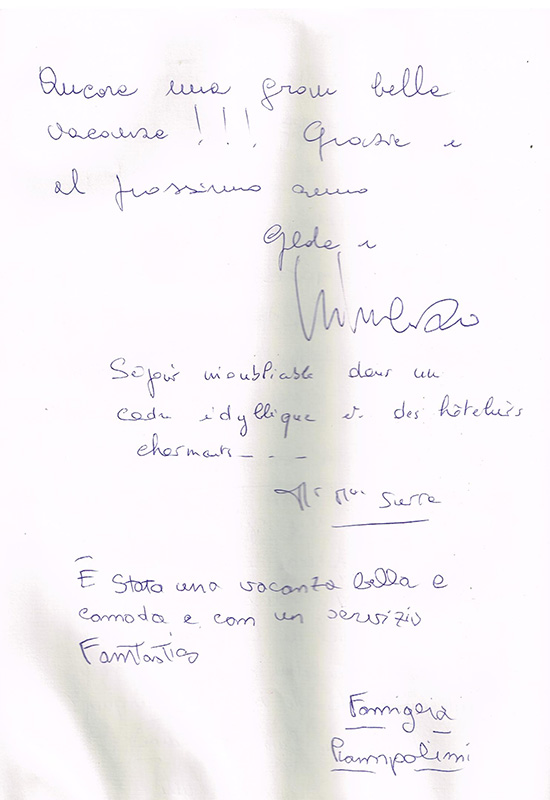 Ancora una gran bella
vacanza !!! Grazie e
al prossimo anno
Gilda e
Séjour inoubliable dans un
cadre idyllique et des hôteliers
charmants - - -
Mr Mme Serra
È stata una vacanza bella e
comoda e con un servizio
Fantastico
Famiglia
Piampolini